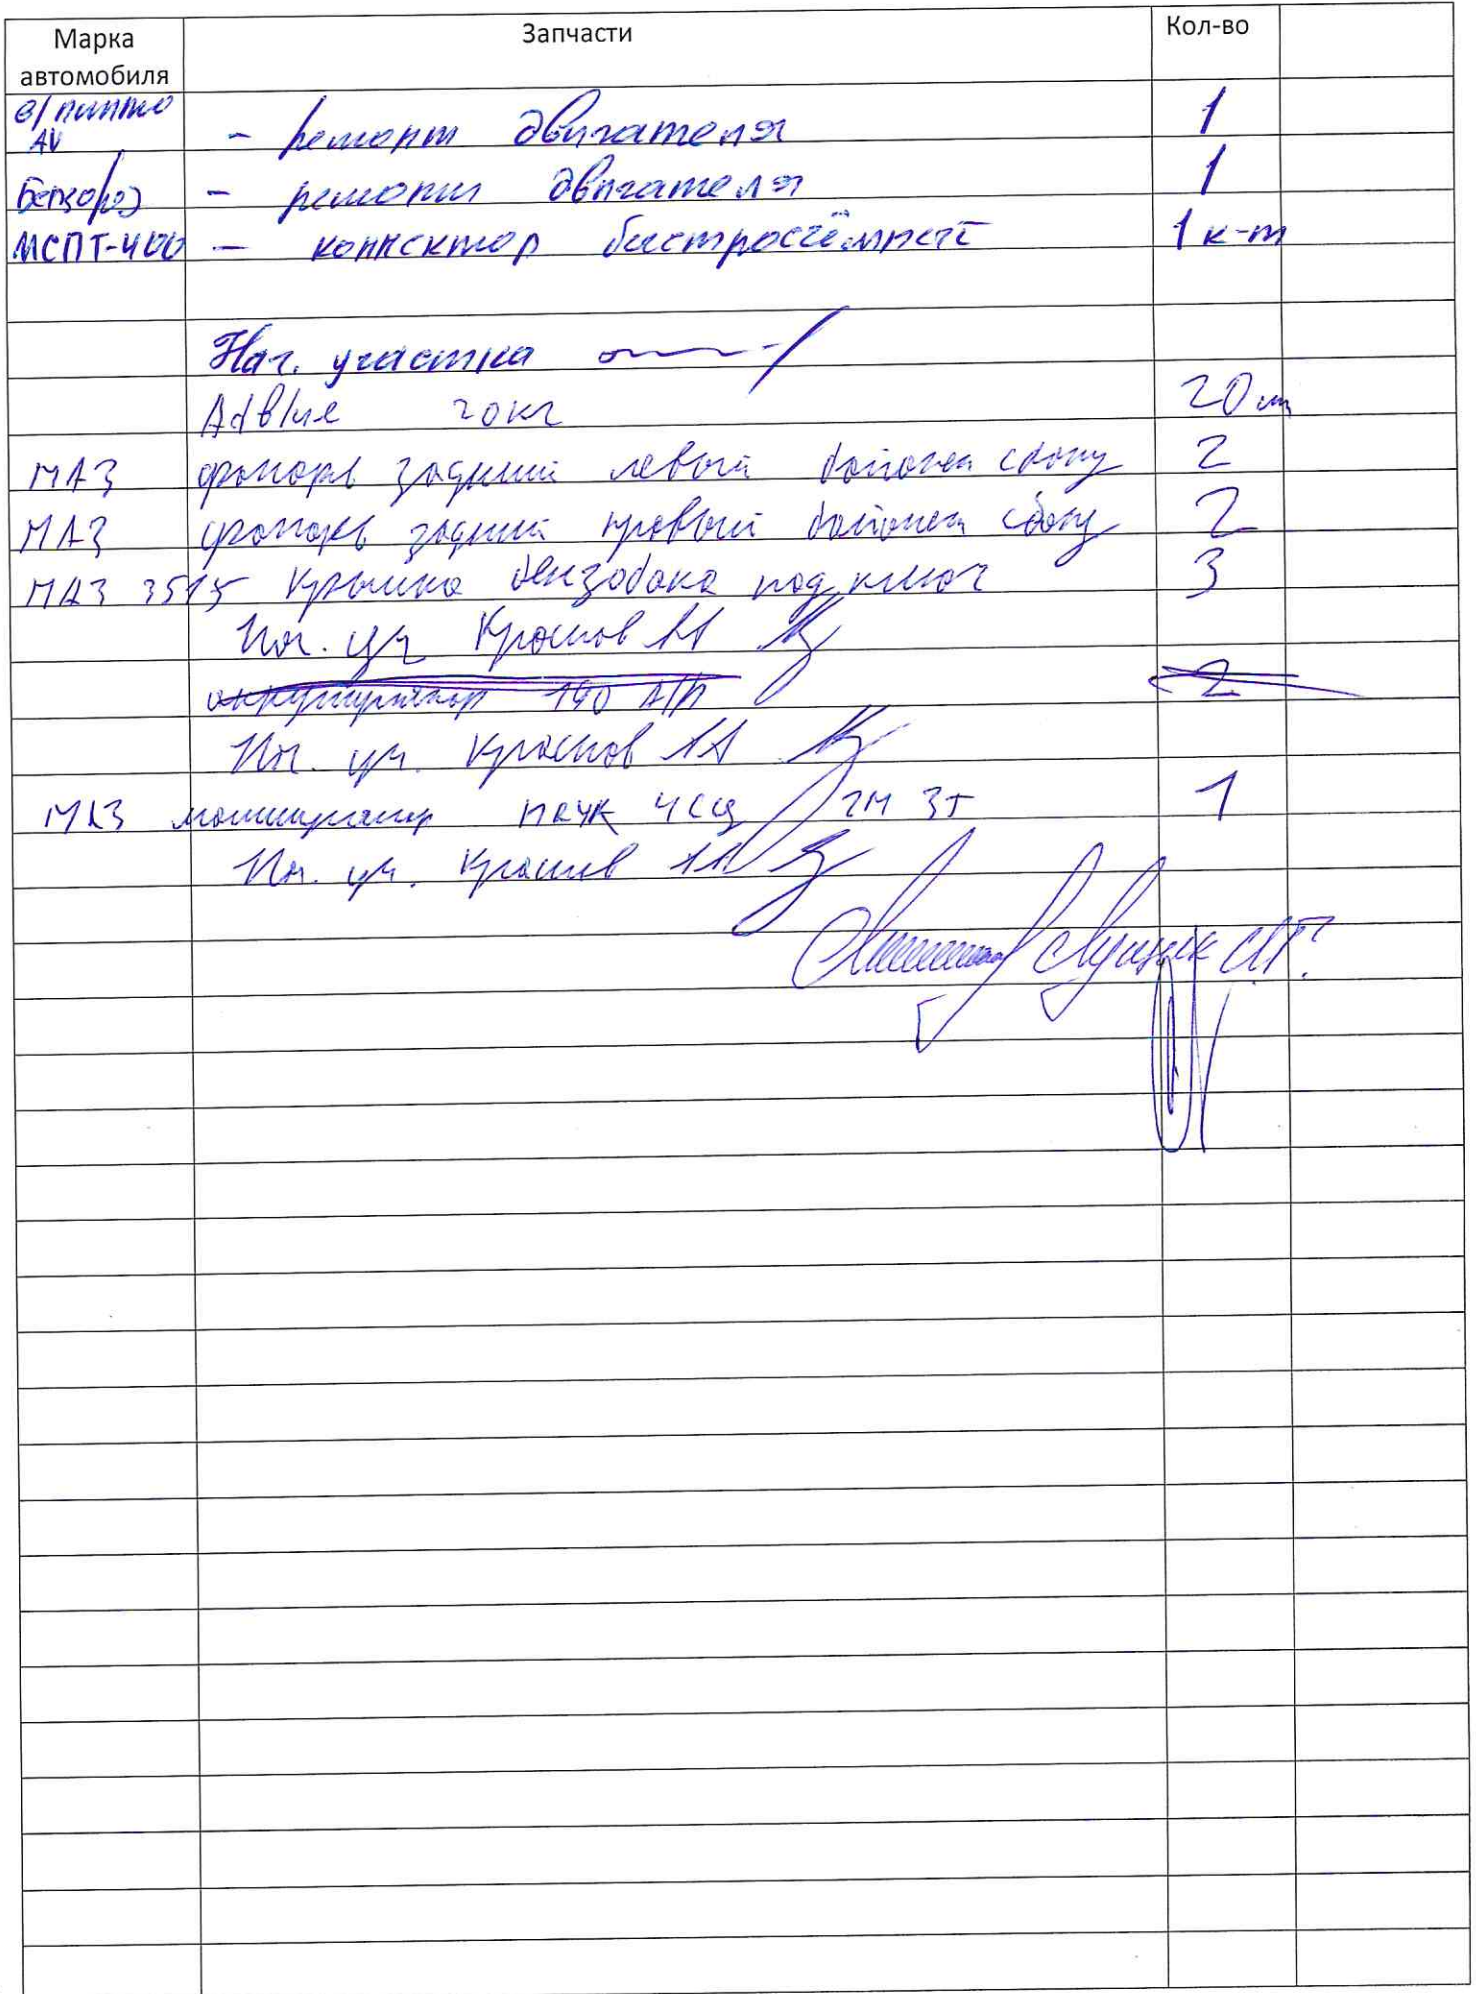 Марка автомобиля Запчасти Кол-во
AV - ремонт двигателя 1
- ремонт двигателя 1
МСПТ-400 - коннектор быстросъёмный 1 к-т
Нач. участка
AdBlue 20кг 20 шт
МАЗ фонарь задний левый сбоку 2
МАЗ фонарь задний правый сбоку 2
МАЗ 3515 крышка бензобака под ключ 3
Нач. уч Краснов АА
аккумулятор 190 А/ч 2
Нач. уч. Краснов АА
МАЗ паук 4СЦ 2М 3Т 1
Нач. уч. Краснов АА